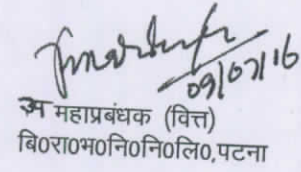 09/07/16
उप महाप्रबंधक (वित्त)
बि0रा0भ0नि0नि0लि0,पटना